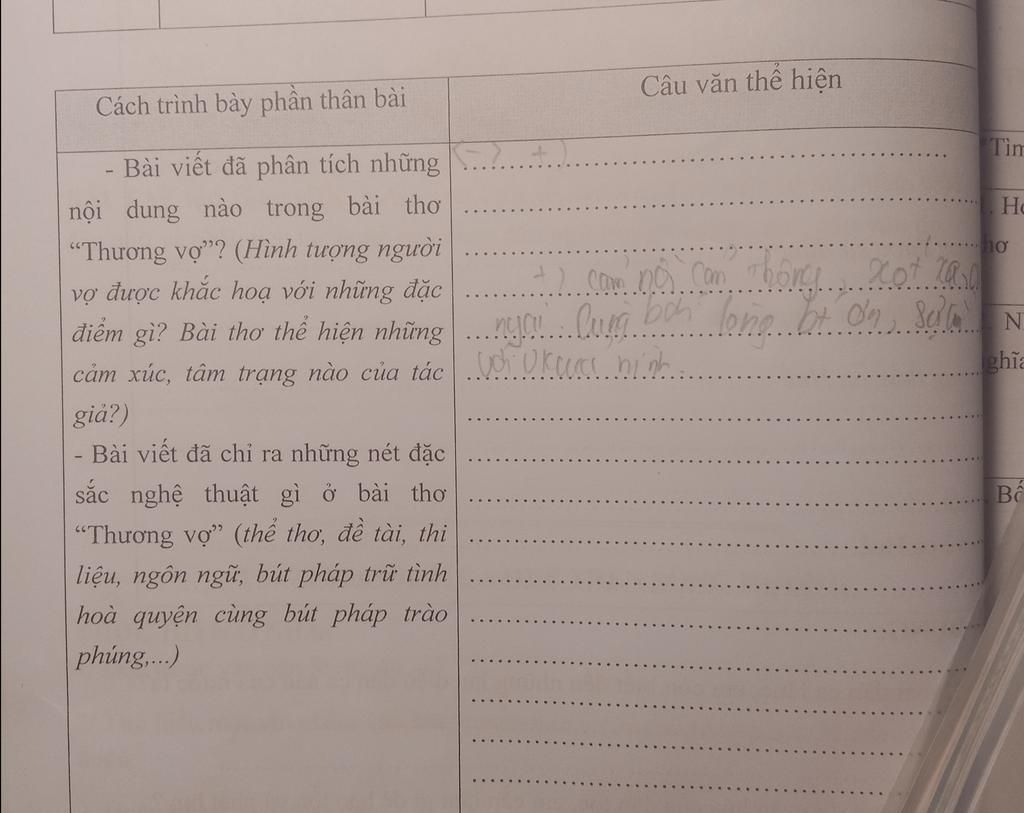 Cách trình bày phần thân bài
Câu văn thể hiện
- Bài viết đã phân tích những
nội dung nào trong bài thơ
“Thương vợ”? (Hình tượng người
vợ được khắc hoạ với những đặc
điểm gì? Bài thơ thể hiện những
cảm xúc, tâm trạng nào của tác
giả?)
- Bài viết đã chỉ ra những nét đặc
sắc nghệ thuật gì ở bài thơ
“Thương vợ” (thể thơ, đề tài, thi
liệu, ngôn ngữ, bút pháp trữ tình
hoà quyện cùng bút pháp trào
phúng,...)
(-) +)
+) cảm thông, xót xa,
lòng bt ơn,
với mình.
Tìm
. H
hơ
N
ghĩa
Bố